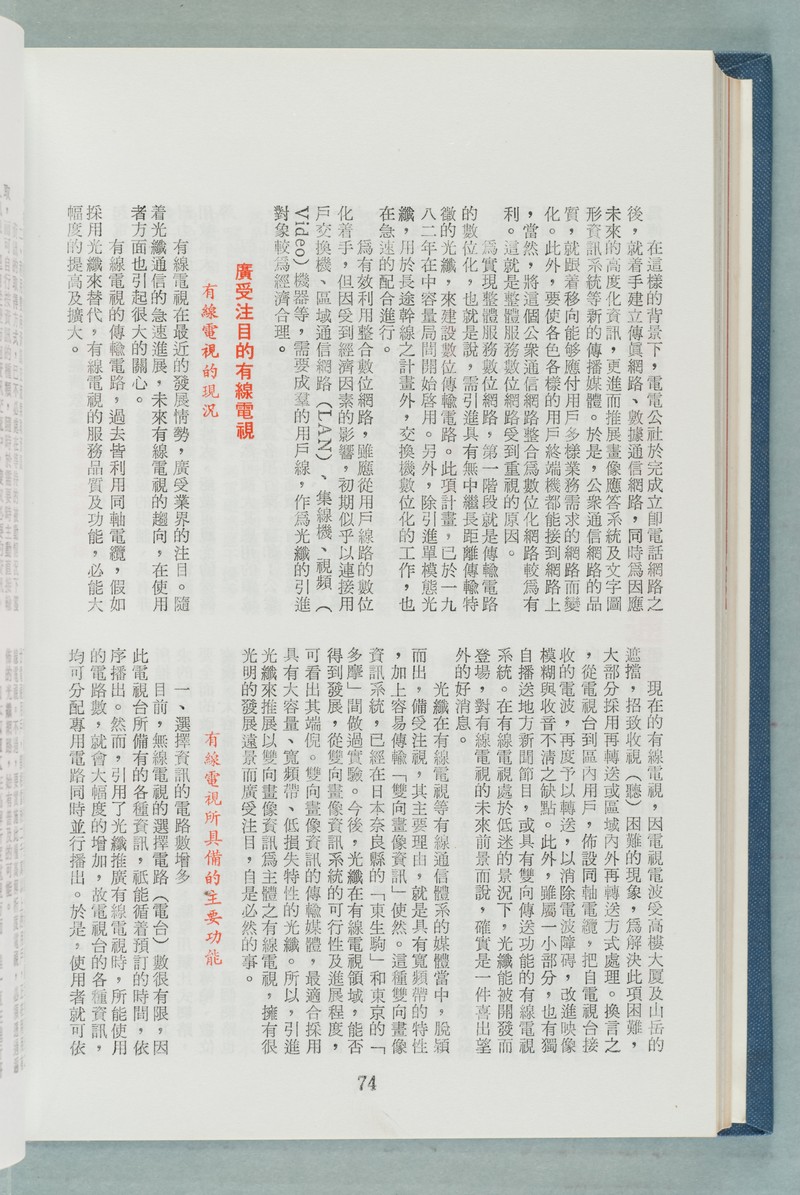 在這樣的背景下，電電公社於完成立即電話網路之
後，就着手建立傳眞網路、數據通信網路，同時爲因應
未來的高度化資訊，更進而推展畫像應答系統及文字圖
形資訊系統等新的傳播媒體。於是，公衆通信網路的品
質，就跟着移向能够應付用戶多樣業務需求的網路而變
化。此外，要使各色各樣的用戶終端機都能接到網路上
，當然，將這個公衆通信網路整合爲數位化網路較爲有
利。這就是整體服務數位網路受到重視的原因。
爲實現整體服務數位網路，第一階段就是傳輸電路
的數位化，也就是說，需引進具有無中繼長距離傳輸特
徵的光纖，來建設數位傳輸電路。此項計畫，已於一九
八二年在中容量局間開始啓用。另外，除引進單模態光
纖，用於長途幹線之計畫外，交換機數位化的工作，也
在急速的配合進行。
爲有效利用整合數位網路，雖應從用戶線路的數位
化着手，但因受到經濟因素的影響，初期似乎以連接用
戶交換機、區域通信網路（LAN）、集線機、視頻（
Video）機器等，需要成羣的用戶線，作爲光纖的引進
對象較爲經濟合理。
廣受注目的有線電視
有線電視的現況
有線電視在最近的發展情勢，廣受業界的注目。隨
着光纖通信的急速進展，未來有線電視的趨向，在使用
者方面也引起很大的關心。
有線電視的傳輸電路，過去皆利用同軸電纜，假如
採用光纖來替代，有線電視的服務品質及功能，必能大
幅度的提高及擴大。
現在的有線電視，因電視電波受高樓大厦及山岳的
遮擋，招致收視（聽）困難的現象，爲解決此項困難，
大部分採用再轉送或區域內外再轉送方式處理。換言之
，從電視台到區內用戶，佈設同軸電纜，把自電視台接
收的電波，再度予以轉送，以消除電波障碍，改進映像
模糊與收音不清之缺點。此外，雖屬一小部分，也有獨
自播送地方新聞節目，或具有雙向傳送功能的有線電視
系統。在有線電視處於低迷的景況下，光纖能被開發而
登場，對有線電視的未來前景而說，確實是一件喜出望
外的好消息。
光纖在有線電視等有線通信體系的媒體當中，脫穎
而出，備受注視，其主要理由，就是具有寬頻帶的特性
，加上容易傳輸「雙向畫像資訊」使然。這種雙向畫像
資訊系統，已經在日本奈良縣的「東生駒」和東京的「
多摩」間做過實驗。今後，光纖在有線電視領域，能否
得到發展，從雙向畫像資訊系統的可行性及進展程度，
可看出其端倪。雙向畫像資訊的傳輸媒體，最適合採用
具有大容量、寬頻帶、低損失特性的光纖。所以，引進
光纖來推展以雙向畫像資訊爲主體之有線電視，擁有很
光明的發展遠景而廣受注目，自是必然的事。
有線電視所具備的主要功能
一、選擇資訊的電路數增多
目前，無線電視的選擇電路（電台）數很有限，因
此電視台所備有的各種資訊，祇能循着預訂的時間，依
序播出。然而，引用了光纖推廣有線電視時，所能使用
的電路數，就會大幅度的增加，故電視台的各種資訊，
均可分配專用電路同時並行播出。於是，使用者就可依
74